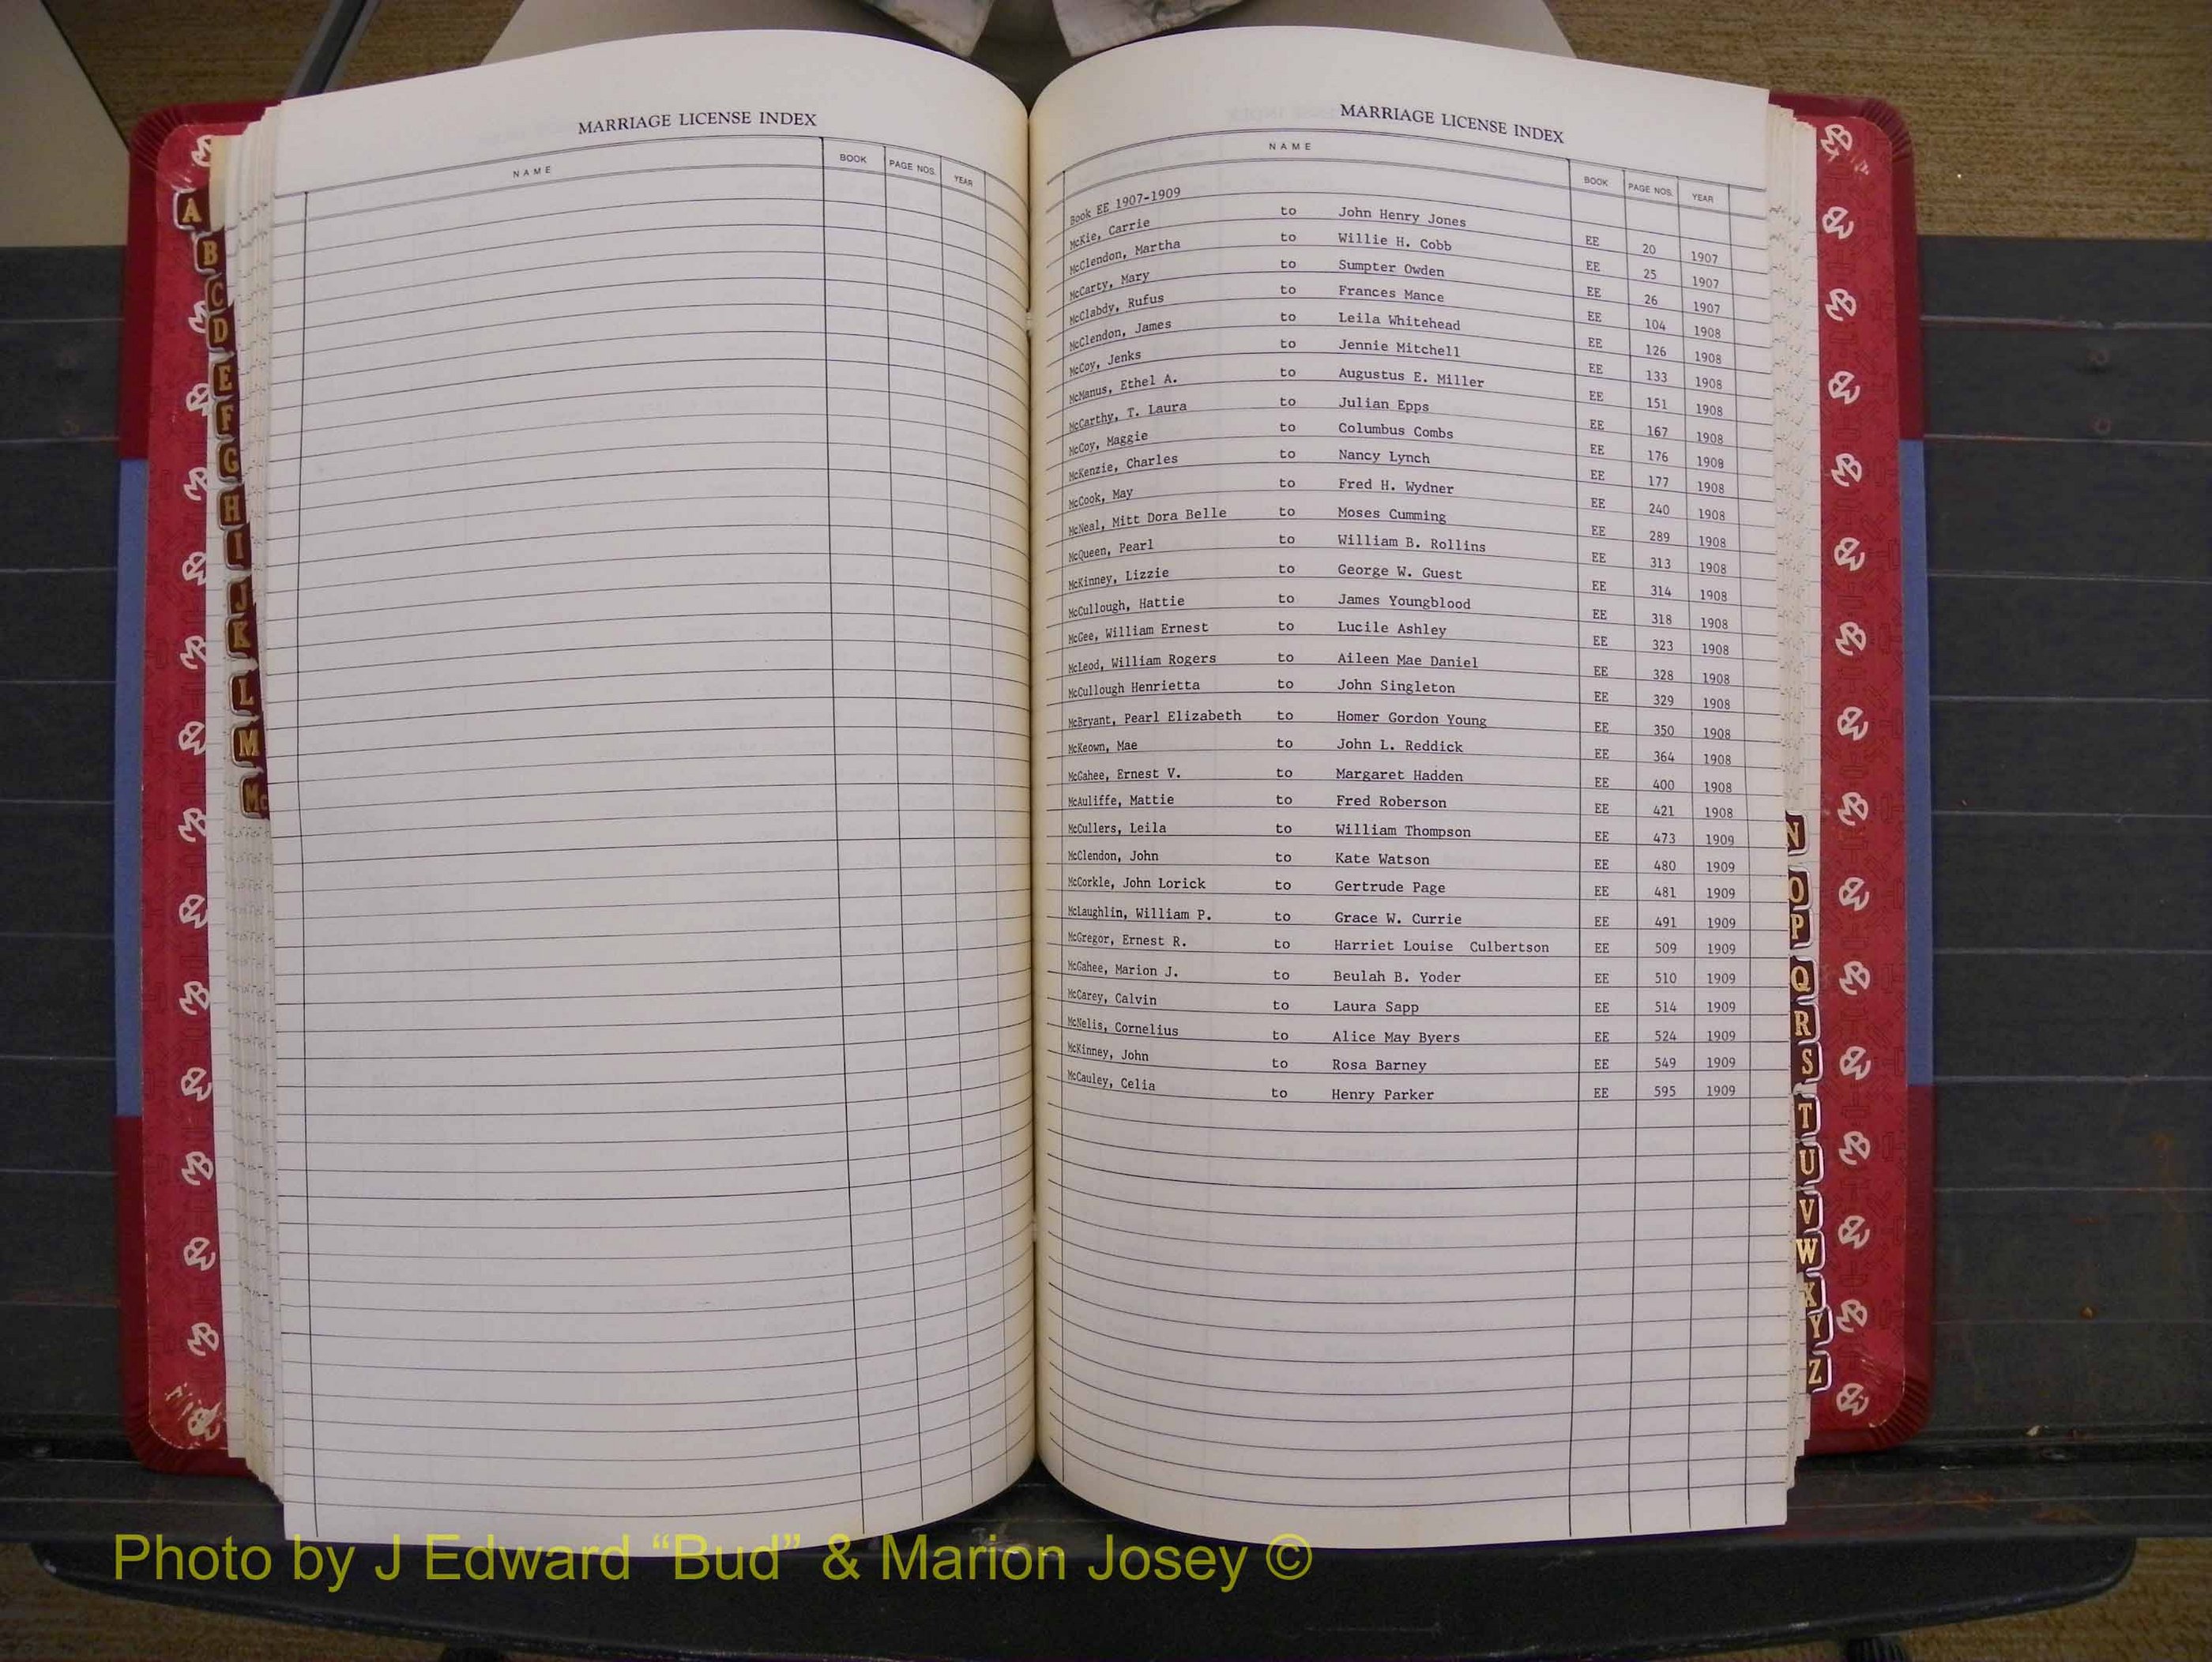 MARRIAGE LICENSE INDEX
NAME BOOK PAGE NOS. YEAR
MARRIAGE LICENSE INDEX
NAME BOOK PAGE NOS. YEAR
Book EE 1907-1909
McKie, Carrie to John Henry Jones EE 20 1907
McClendon, Martha to Willie H. Cobb EE 25 1907
McCarty, Mary to Sumpter Owden EE 26 1907
McClabdy, Rufus to Frances Mance EE 104 1908
McClendon, James to Leila Whitehead EE 126 1908
McCoy, Jenks to Jennie Mitchell EE 133 1908
McManus, Ethel A. to Augustus E. Miller EE 151 1908
McCarthy, T. Laura to Julian Epps EE 167 1908
McCoy, Maggie to Columbus Combs EE 176 1908
McKenzie, Charles to Nancy Lynch EE 177 1908
McCook, May to Fred H. Wydner EE 240 1908
McNeal, Mitt Dora Belle to Moses Cumming EE 289 1908
McQueen, Pearl to William B. Rollins EE 313 1908
McKinney, Lizzie to George W. Guest EE 314 1908
McCullough, Hattie to James Youngblood EE 318 1908
McGee, William Ernest to Lucile Ashley EE 323 1908
McLeod, William Rogers to Aileen Mae Daniel EE 328 1908
McCullough Henrietta to John Singleton EE 329 1908
McBryant, Pearl Elizabeth to Homer Gordon Young EE 350 1908
McKeown, Mae to John L. Reddick EE 364 1908
McGahee, Ernest V. to Margaret Hadden EE 400 1908
McAuliffe, Mattie to Fred Roberson EE 421 1908
McCullers, Leila to William Thompson EE 473 1909
McClendon, John to Kate Watson EE 480 1909
McCorkle, John Lorick to Gertrude Page EE 481 1909
McLaughlin, William P. to Grace W. Currie EE 491 1909
McGregor, Ernest R. to Harriet Louise Culbertson EE 509 1909
McGahee, Marion J. to Beulah B. Yoder EE 510 1909
McCarey, Calvin to Laura Sapp EE 514 1909
McNelis, Cornelius to Alice May Byers EE 524 1909
McKinney, John to Rosa Barney EE 549 1909
McCauley, Celia to Henry Parker EE 595 1909
A
B
C
D
E
F
G
H
I
J
K
L
M
Mc
N
O
P
Q
R
S
T
U
V
W
X
Y
Z
Photo by J Edward “Bud” & Marion Josey ©